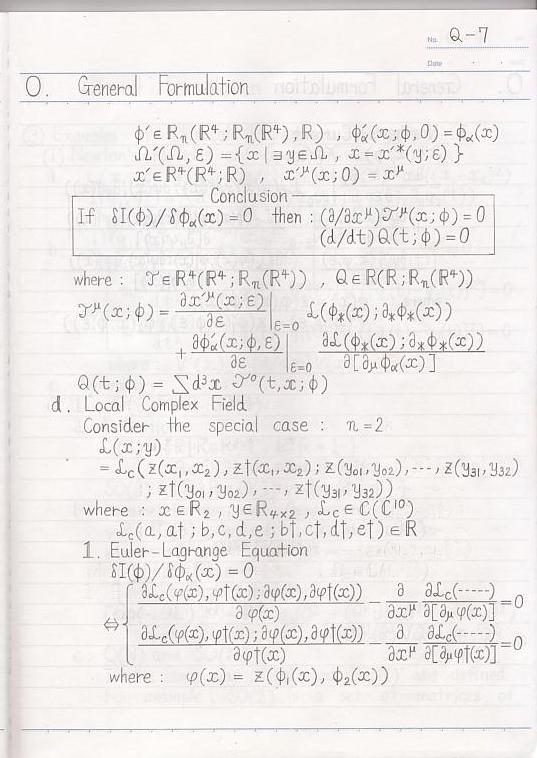 No. Q-7
Date
0. General Formulation
ϕ′∈ℝₙ(ℝ⁴;ℝₙ(ℝ⁴),ℝ) ϕ′α(x;ϕ,0)=ϕα(x)
Ω′(Ω,ε)={x|∃y∈Ω, x=x′*(y;ε)}
x′∈ℝ⁴(ℝ⁴;ℝ), x′μ(x;0)=xμ
Conclusion
If δI(ϕ)/δϕα(x)=0 then : (∂/∂xμ)𝒯μ(x;ϕ)=0
(d/dt)Q(t;ϕ)=0
where : 𝒯∈ℝ⁴(ℝ⁴;ℝₙ(ℝ⁴)), Q∈ℝ(ℝ;ℝₙ(ℝ⁴))
𝒯μ(x;ϕ)= ∂x′μ(x;ε)/∂ε |ε=0 ℒ(ϕ*(x);∂*ϕ*(x))
+ ∂ϕ′α(x;ϕ,ε)/∂ε |ε=0 ∂ℒ(ϕ*(x);∂*ϕ*(x))/∂[∂μϕα(x)]
Q(t;ϕ)=∑d³x 𝒯⁰(t,x;ϕ)
d. Local Complex Field
Consider the special case : n=2
ℒ(x;y)
=ℒc(z(x₁,x₂),z†(x₁,x₂);z(y₀₁,y₀₂),---,z(y₃₁,y₃₂)
;z†(y₀₁,y₀₂),---,z†(y₃₁,y₃₂))
where : x∈ℝ₂, y∈ℝ₄ₓ₂, ℒc∈ℂ(ℂ¹⁰)
ℒc(a,a†;b,c,d,e;b†,c†,d†,e†)∈ℝ
1. Euler-Lagrange Equation
δI(ϕ)/δϕα(x)=0
⇔{ ∂ℒc(φ(x),φ†(x);∂φ(x),∂φ†(x))/∂φ(x) − ∂/∂xμ ∂ℒc(-----)/∂[∂μφ(x)]=0
∂ℒc(φ(x),φ†(x);∂φ(x),∂φ†(x))/∂φ†(x) − ∂/∂xμ ∂ℒc(-----)/∂[∂μφ†(x)]=0
where : φ(x)=z(ϕ₁(x),ϕ₂(x))